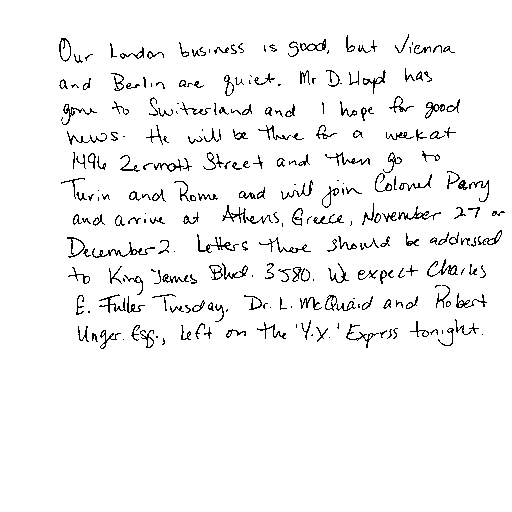 Our London business is good, but Vienna
and Berlin are quiet. Mr D. Lloyd has
gone to Switzerland and I hope for good
news. He will be there for a week at
1496 Zermott Street and then go to
Turin and Rome and will join Colonel Parry
and arrive at Athens, Greece, November 27 or
December 2. Letters there should be addressed
to King James Blvd. 3580. We expect Charles
E. Fuller Tuesday. Dr. L. McQuaid and Robert
Unger. Esq., left on the 'Y.X.' Express tonight.